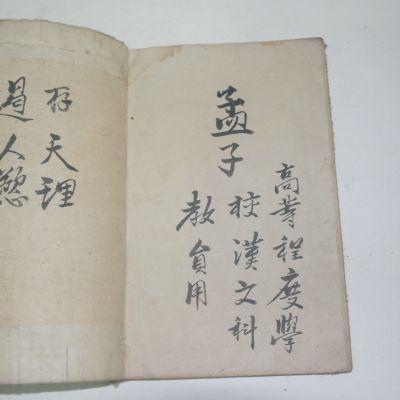 高等程度學
校漢文科
教員用
孟子
存天理
遏人慾